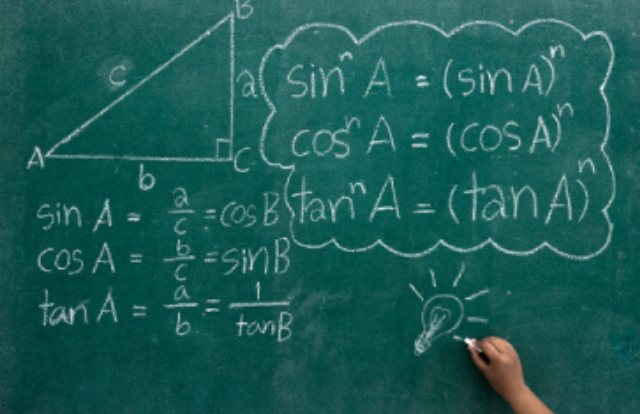 B
c
a
A
b
C
sin A = a/c = cosB
cos A = b/c = sinB
tan A = a/b = 1/tanB
sinⁿ A = (sin A)ⁿ
cosⁿ A = (cos A)ⁿ
tanⁿ A = (tan A)ⁿ